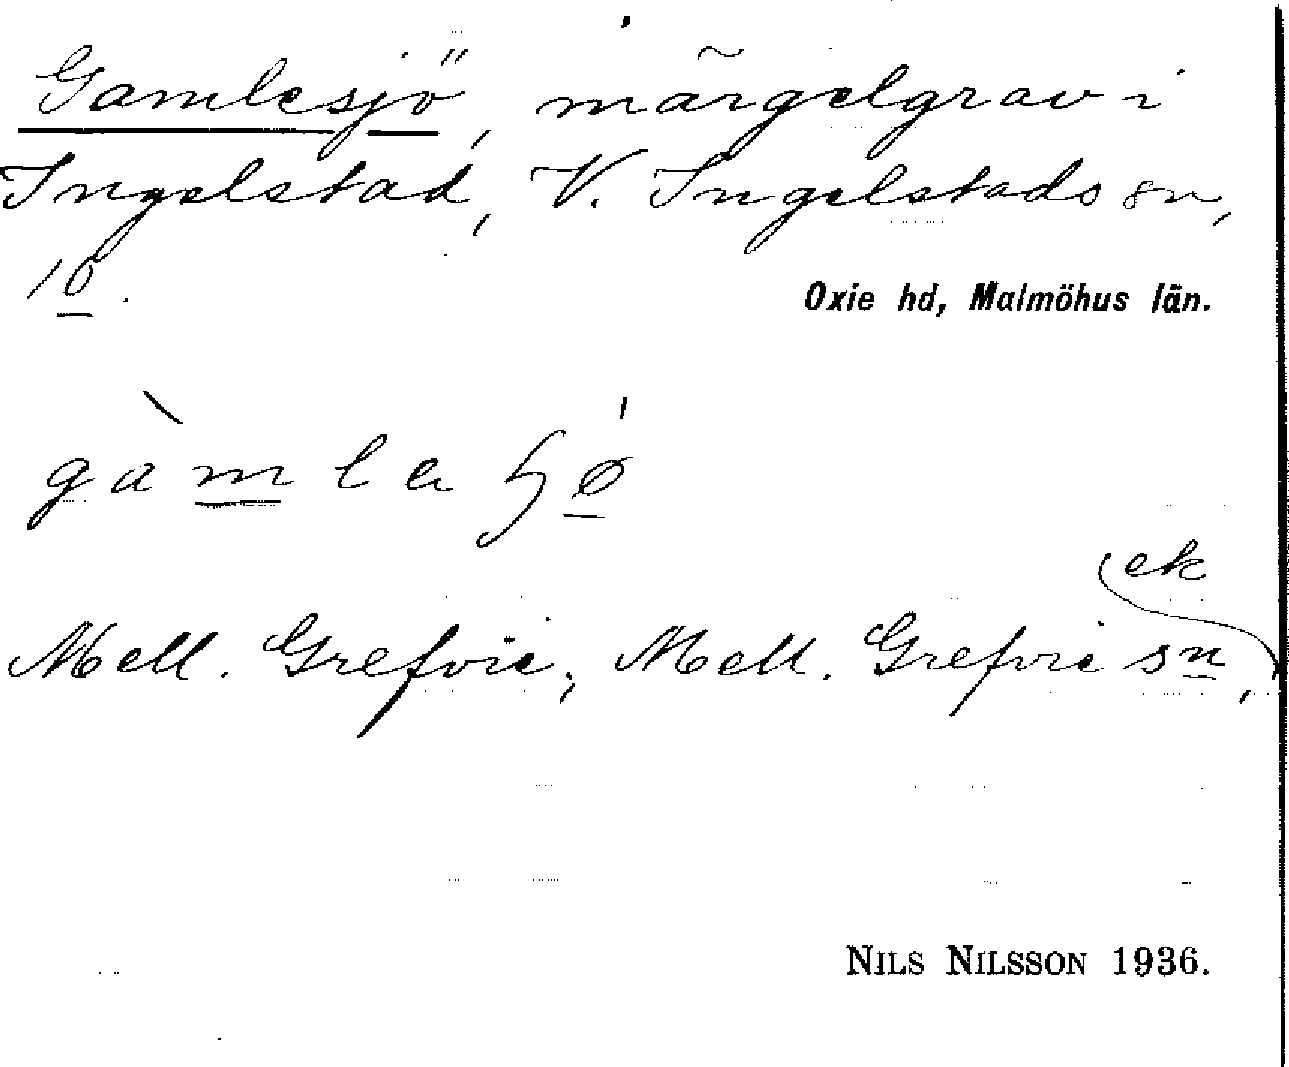 Gamlesjö, märgelgrav i
Ingelstad, V. Ingelstads sn,
10.
Oxie hd, Malmöhus län.
gàmla ɧǿ
ek
Mell. Grefvie; Mell. Grefvie sn,
NILS NILSSON 1936.